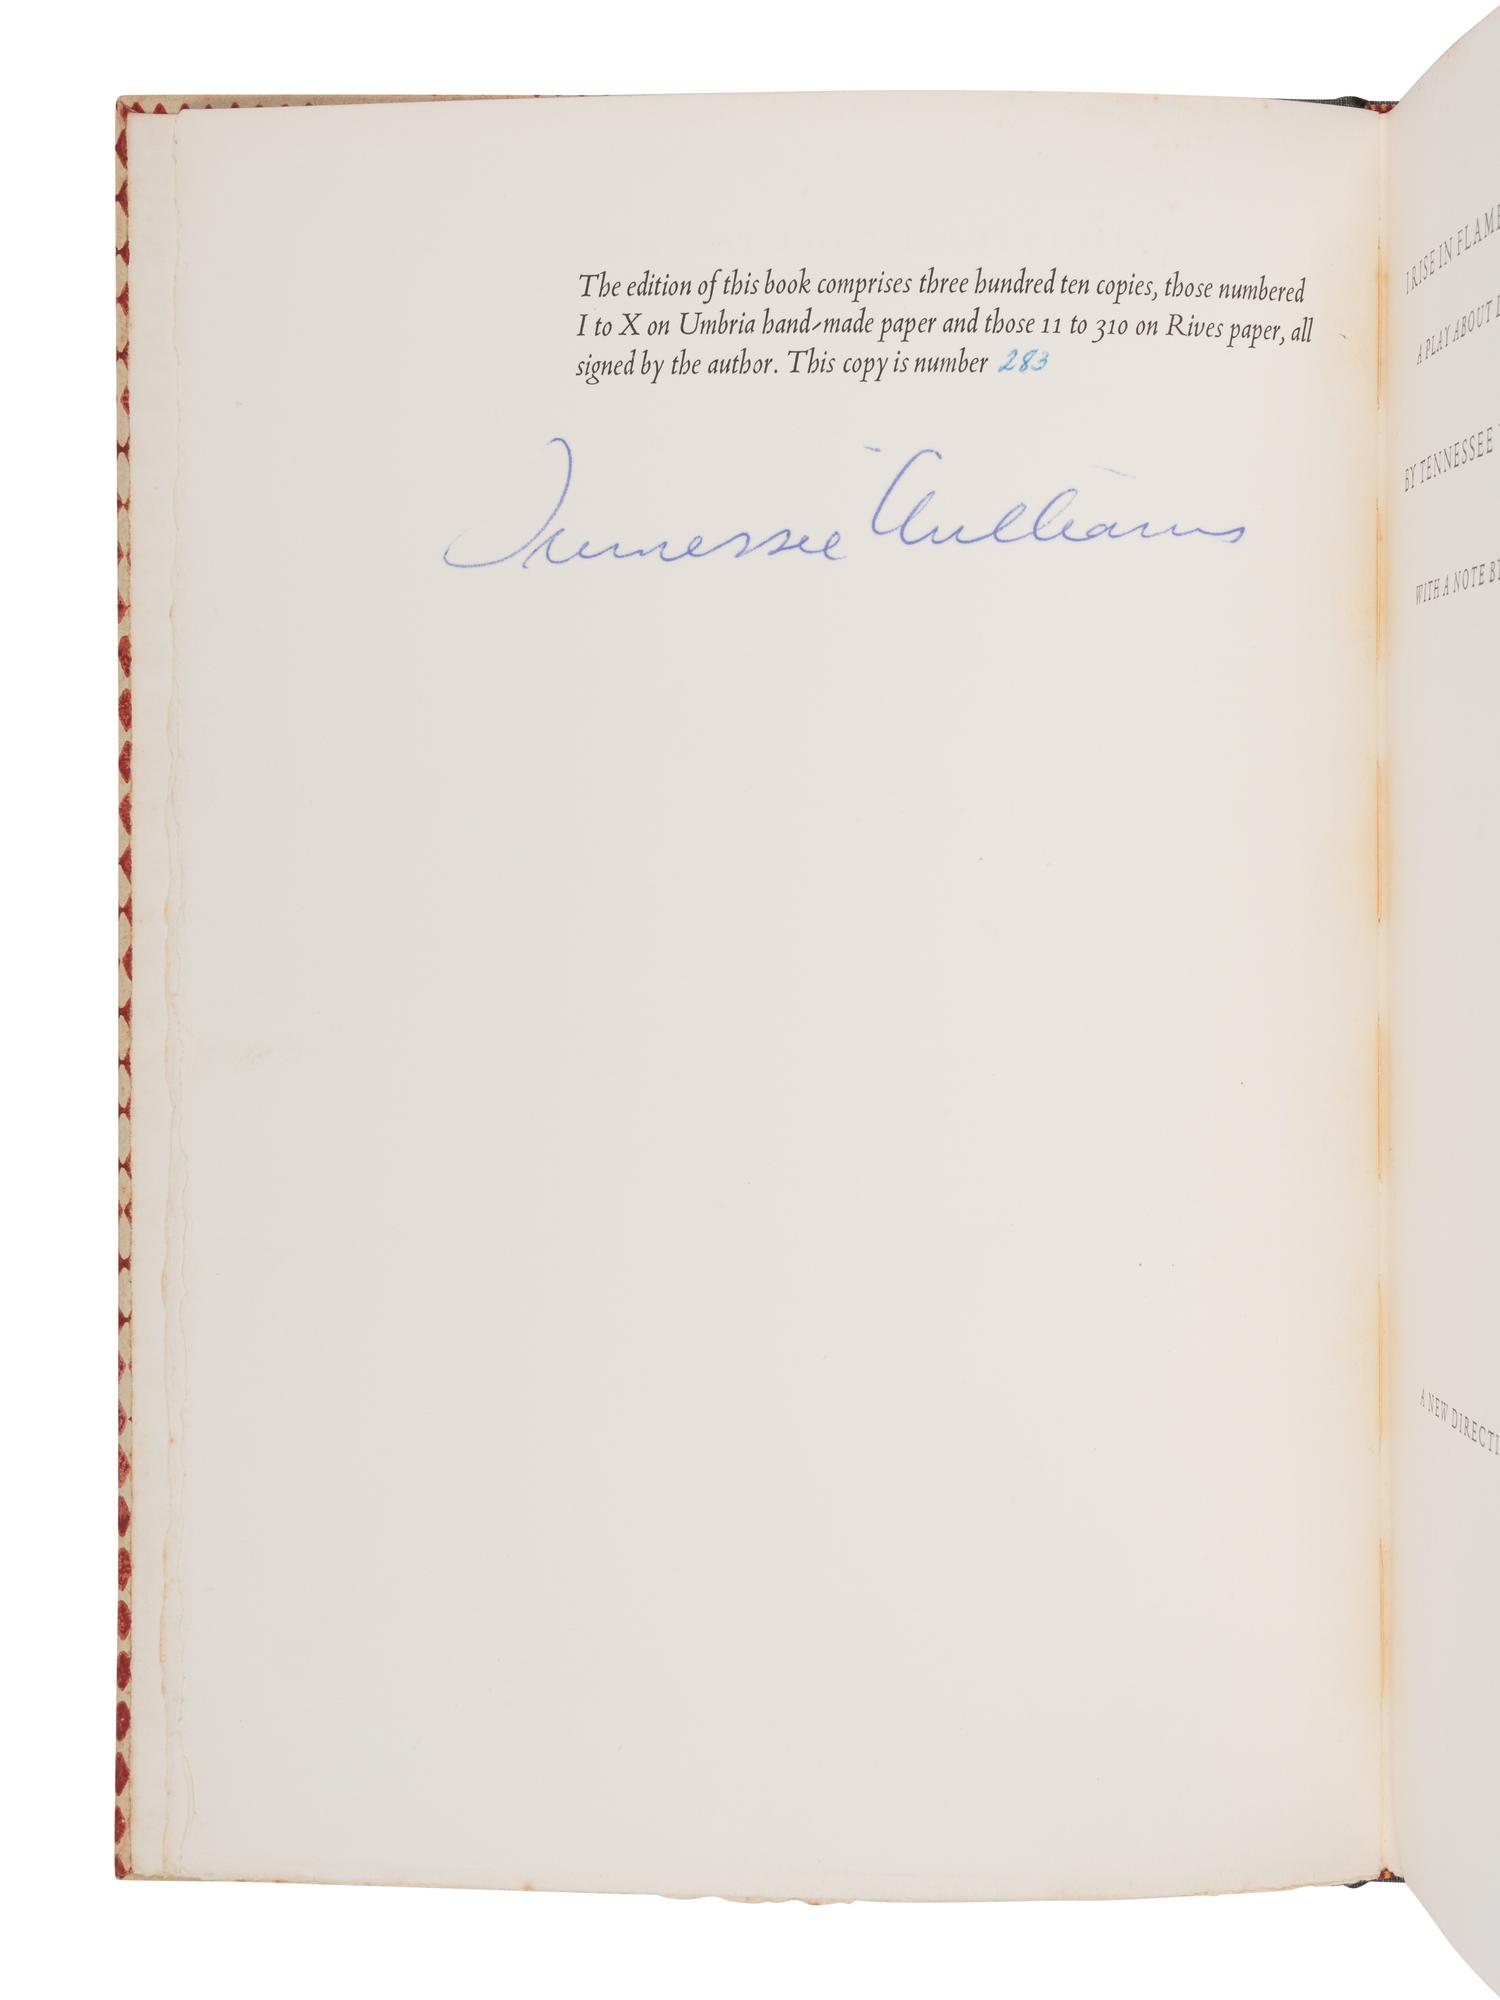 The edition of this book comprises three hundred ten copies, those numbered
I to X on Umbria hand-made paper and those 11 to 310 on Rives paper, all
signed by the author. This copy is number 283
Tennessee Williams
I RISE IN FLAME
A PLAY ABOUT
BY TENNESSEE
WITH A NOTE BY
A NEW DIRECTI